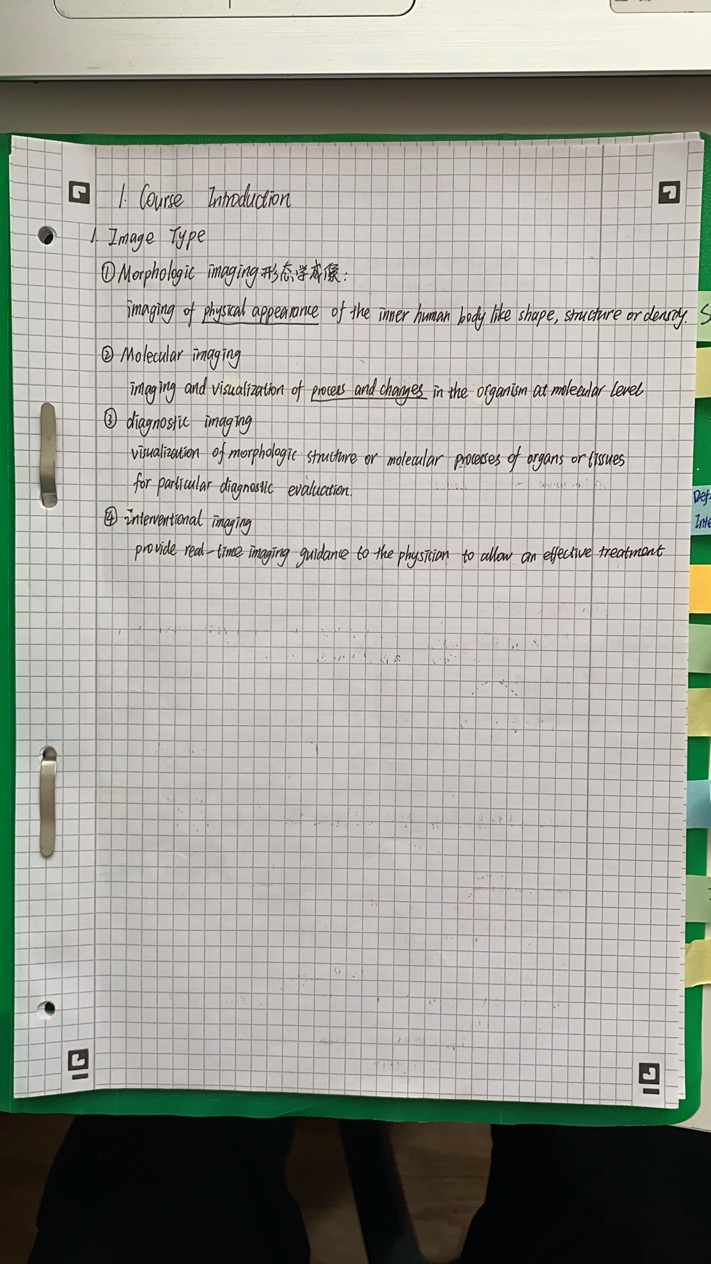 1. Course Introduction
1. Image Type
① Morphologic imaging 形态学成像:
imaging of physical appearance of the inner human body like shape, structure or density.
② Molecular imaging
imaging and visualization of process and changes in the organism at molecular level
③ diagnostic imaging
visualization of morphologic structure or molecular processes of organs or tissues
for particular diagnostic evaluation.
④ interventional imaging
provide real-time imaging guidance to the physician to allow an effective treatment
S
Def
Inte